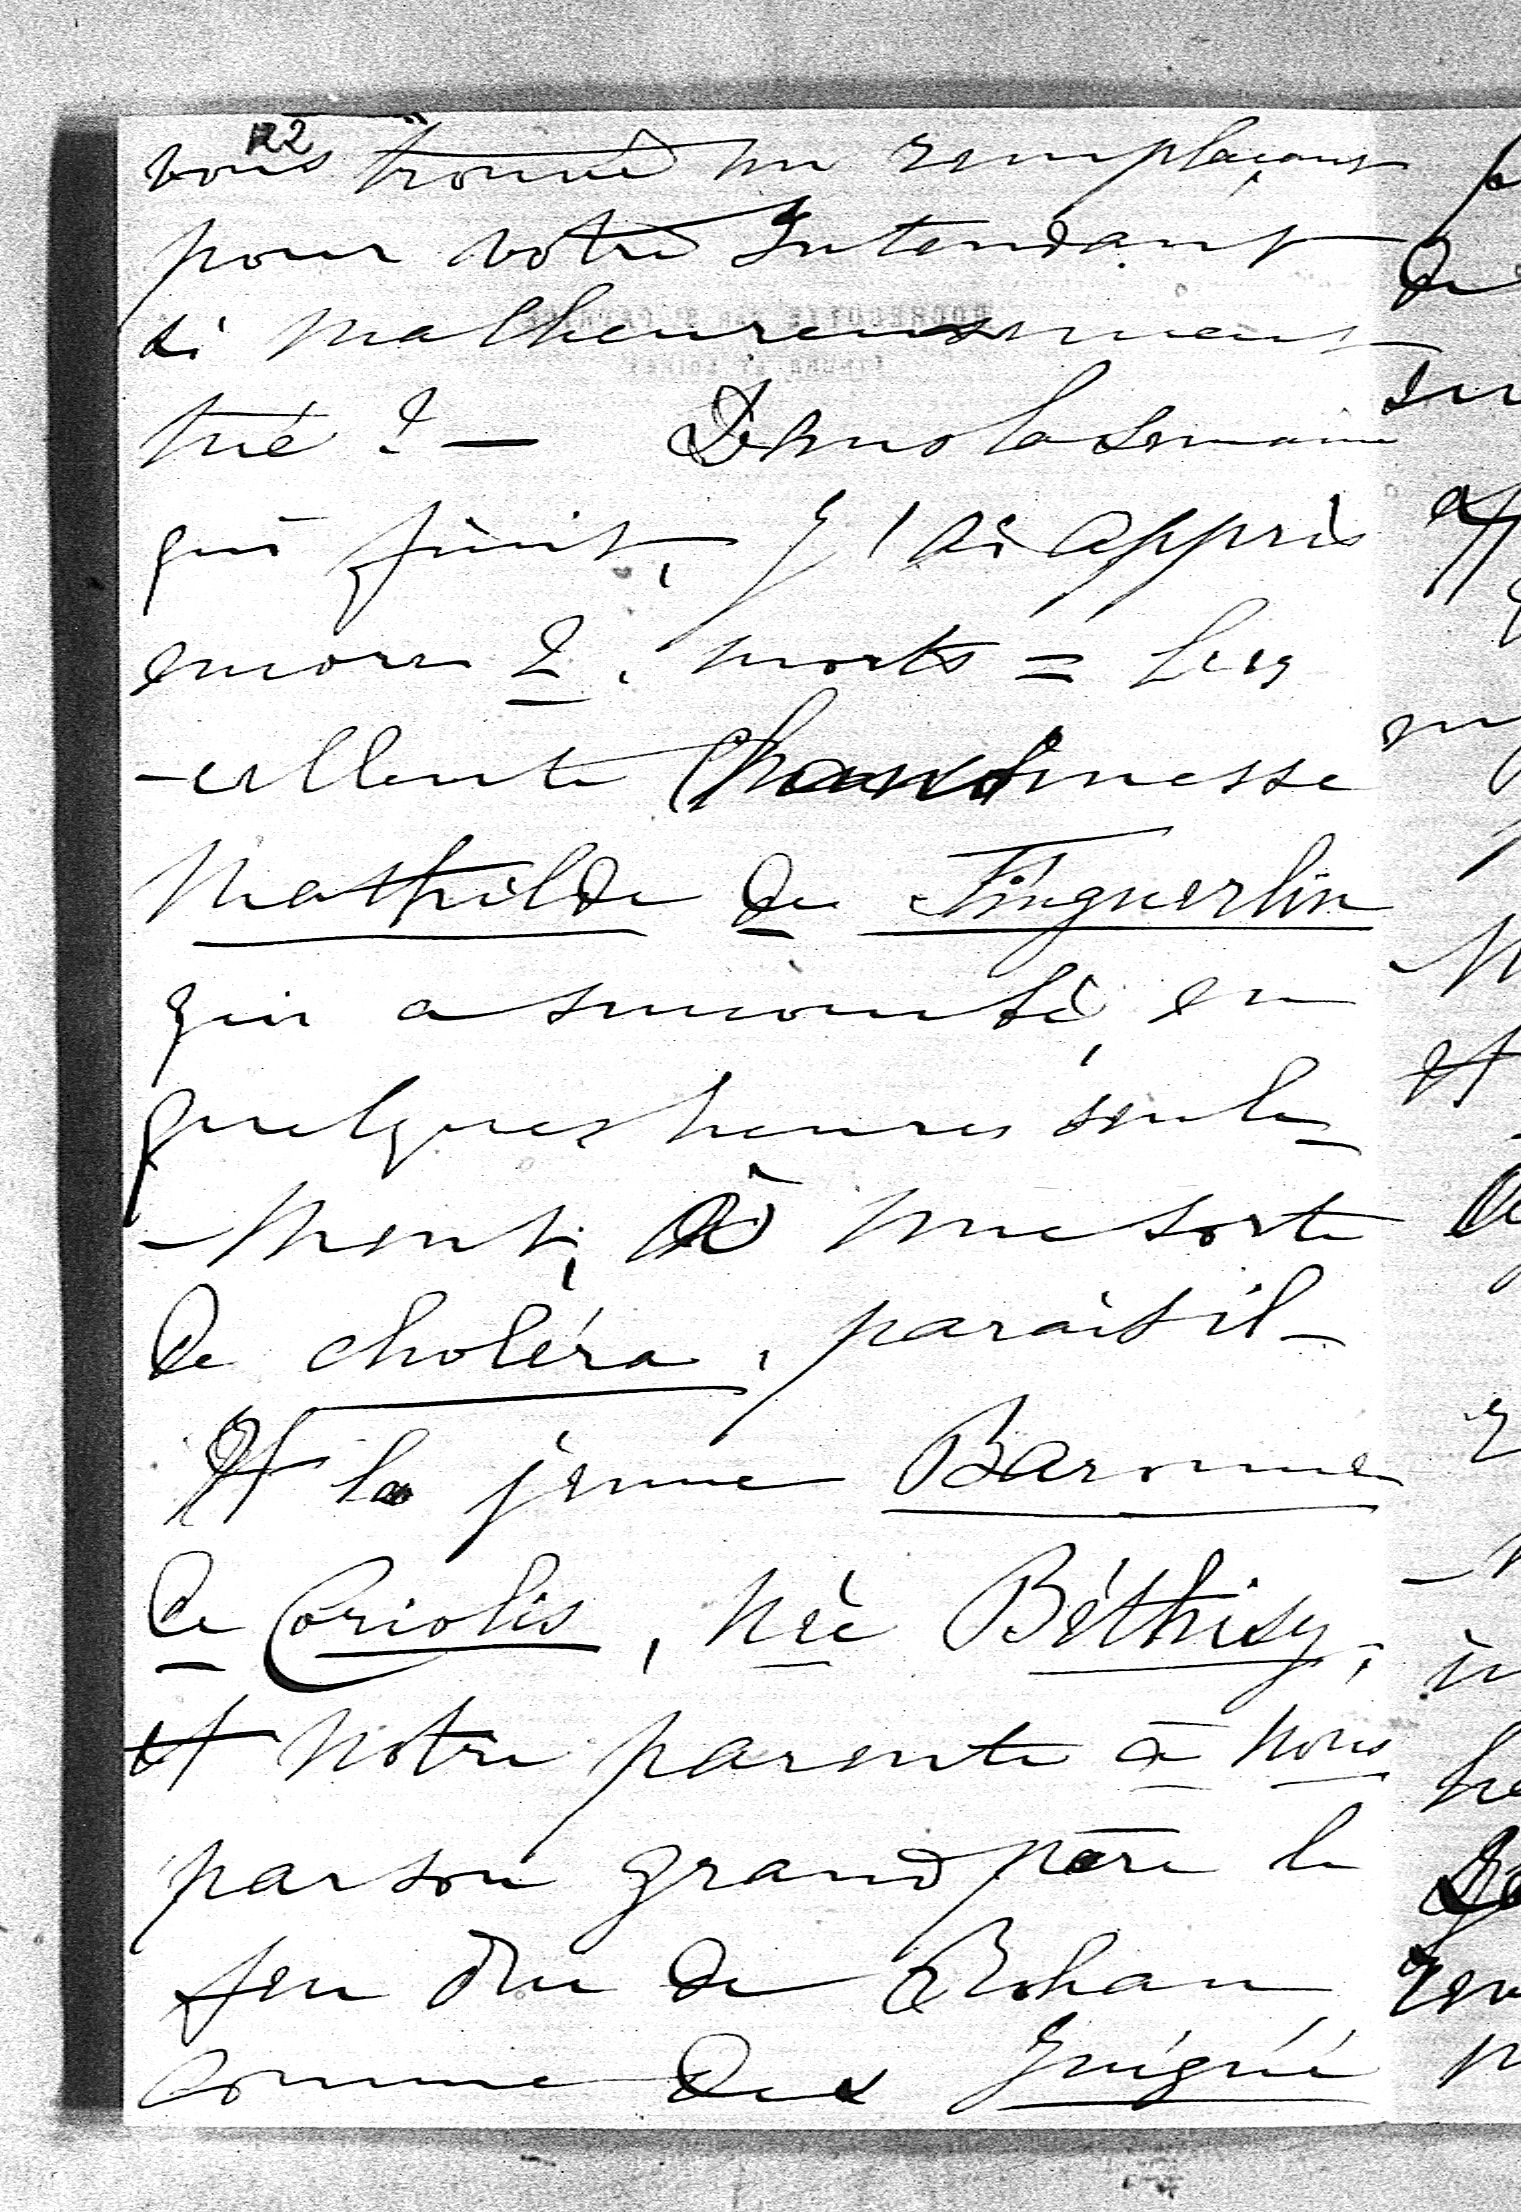 122
vous trouvé un remplaçant
pour votre Intendant
si malheureusement
tué ? — Dans la semaine
qui finit, j'ai appris
encore 2. morts = l'ex
-cellente Chanoinesse
Mathilde de Finguerlin
qui a succombé, en
quelques heures seule-
-ment, à une sorte
de choléra, parait il -
Et la jeune Baronne
de Coriolis, née Béthisy,
et notre parente à nous
par son grand père le
feu duc de Rohan
comme des